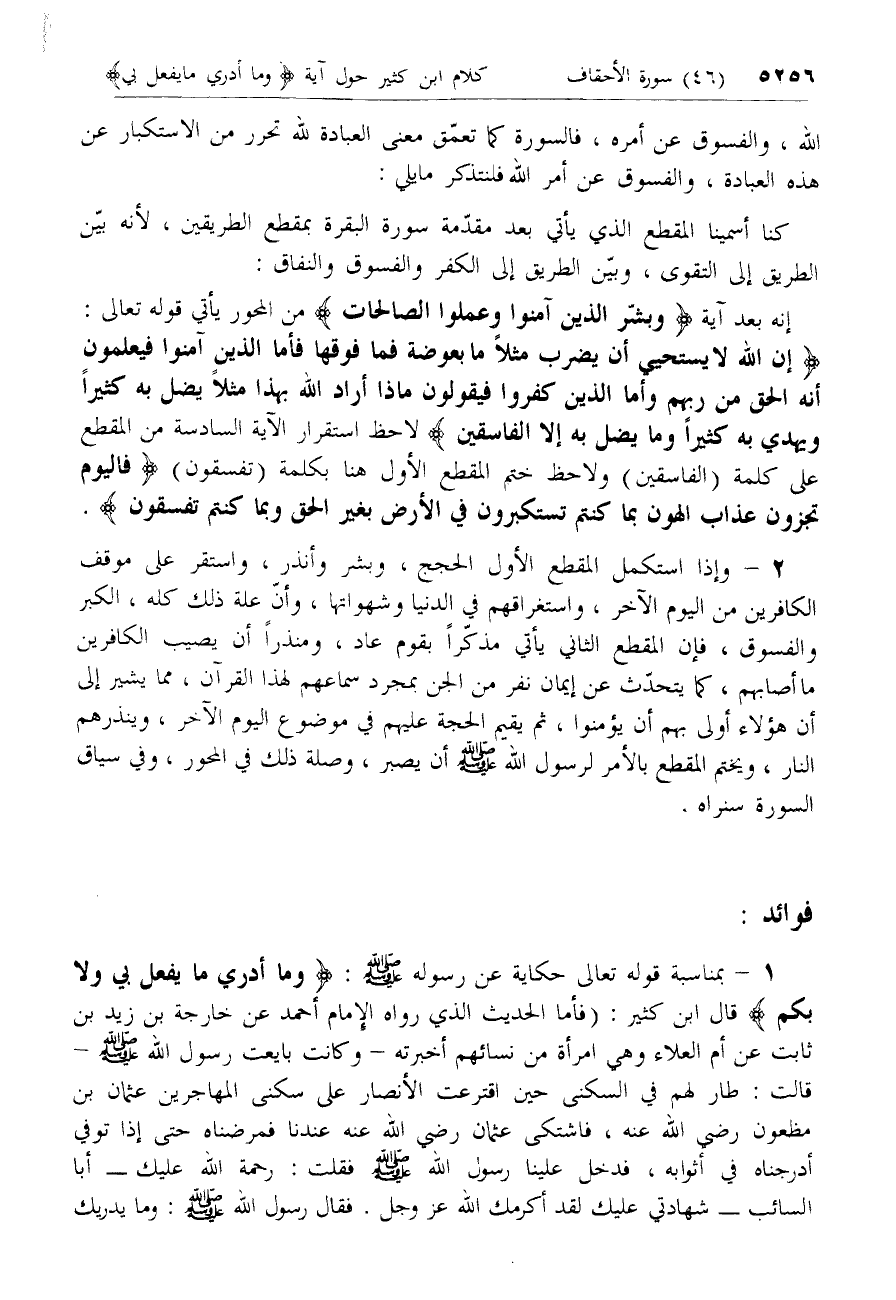 ٥٢٥٦ (٤٦) سورة الأحقاف كلام ابن كثير حول آية ﴿ وما أدري مايفعل بي﴾
الله ، والفسوق عن أمره ، فالسورة كما تعمّق معنى العبادة لله تحرر من الاستكبار عن
هذه العبادة ، والفسوق عن أمر الله فلنتذكر مايلي :
كنا أسمينا المقطع الذي يأتي بعد مقدّمة سورة البقرة بمقطع الطريقين ، لأنه بيّن
الطريق إلى التقوى ، وبيّن الطريق إلى الكفر والفسوق والنفاق :
إنه بعد آية ﴿ وبشّر الذين آمنوا وعملوا الصالحات ﴾ من المحور يأتي قوله تعالى :
﴿ إن الله لايستحيي أن يضرب مثلاً مابعوضة فما فوقها فأما الذين آمنوا فيعلمون
أنه الحق من ربهم وأما الذين كفروا فيقولون ماذا أراد الله بهذا مثلاً يضل به كثيراً
ويهدي به كثيراً وما يضل به إلا الفاسقين ﴾ لاحظ استقرار الآية السادسة من المقطع
على كلمة (الفاسقين) ولاحظ ختم المقطع الأول هنا بكلمة (تفسقون) ﴿ فاليوم
تجزون عذاب الهون بما كنتم تستكبرون في الأرض بغير الحق وبما كنتم تفسقون ﴾ .
٢ – وإذا استكمل المقطع الأول الحجج ، وبشر وأنذر ، واستقر على موقف
الكافرين من اليوم الآخر ، واستغراقهم في الدنيا وشهواتها ، وأنّ علة ذلك كله ، الكبر
والفسوق ، فإن المقطع الثاني يأتي مذكّراً بقوم عاد ، ومنذراً أن يصيب الكافرين
ماأصابهم ، كما يتحدّث عن إيمان نفر من الجن بمجرد سماعهم لهذا القرآن ، مما يشير إلى
أن هؤلاء أولى بهم أن يؤمنوا ، ثم يقيم الحجة عليهم في موضوع اليوم الآخر ، وينذرهم
النار ، ويختم المقطع بالأمر لرسول الله ﷺ أن يصبر ، وصلة ذلك في المحور ، وفي سياق
السورة سنراه .
فوائد :
١ – بمناسبة قوله تعالى حكاية عن رسوله ﷺ : ﴿ وما أدري ما يفعل بي ولا
بكم ﴾ قال ابن كثير : (فأما الحديث الذي رواه الإمام أحمد عن خارجة بن زيد بن
ثابت عن أم العلاء وهي امرأة من نسائهم أخبرته – وكانت بايعت رسول الله ﷺ –
قالت : طار لهم في السكنى حين اقترعت الأنصار على سكنى المهاجرين عثمان بن
مظعون رضي الله عنه ، فاشتكى عثمان رضي الله عنه عندنا فمرضناه حتى إذا توفي
أدرجناه في أثوابه ، فدخل علينا رسول الله ﷺ فقلت : رحمة الله عليك ــ أبا
السائب ــ شهادتي عليك لقد أكرمك الله عز وجل . فقال رسول الله ﷺ : وما يدريك